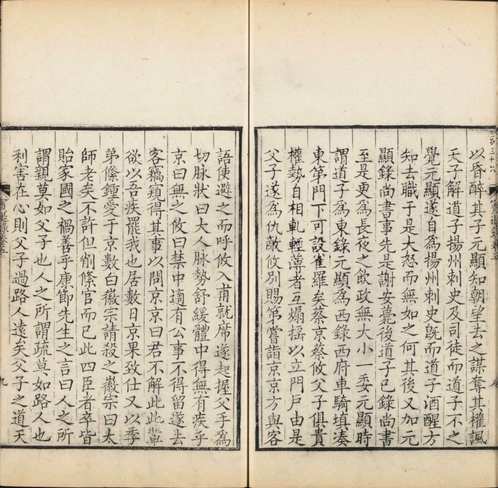 以昏醉其子元顯知朝望去之謀奪其權諷
天子解道子揚州刺史及司徒而道子不之
覺元顯遂自為揚州刺史旣而道子酒醒方
知去職于是大怒而無如之何其後又加元
顯錄尚書事先是謝安薨後道子已錄尚書
至是更為長夜之飲政無大小一委元顯時
謂道子為東錄元顯為西錄西府車騎填湊
東第門下可設雀羅矣蔡京蔡攸父子俱貴
權勢自相軋輕薄者互煽搖以立門戶由是
父子遂為仇敵攸別賜第嘗詣京京方與客
語使避之而呼攸入甫就席遽起握父手為
切脉狀曰大人脉勢舒緩體中得無有疾乎
京曰無之攸曰禁中適有公事不得留遂去
客竊窺得其事以問京京曰君不解此此輩
欲以吾疾罷我也居數日京果致仕又以季
弟絛鍾愛于京數白徽宗請殺之徽宗曰太
師老矣不許但削絛官而已此四臣者卒皆
貽家國之禍善乎康節先生之言曰人之所
謂親莫如父子也人之所謂疏莫如路人也
利害在心則父子過路人遠矣父子之道天
九